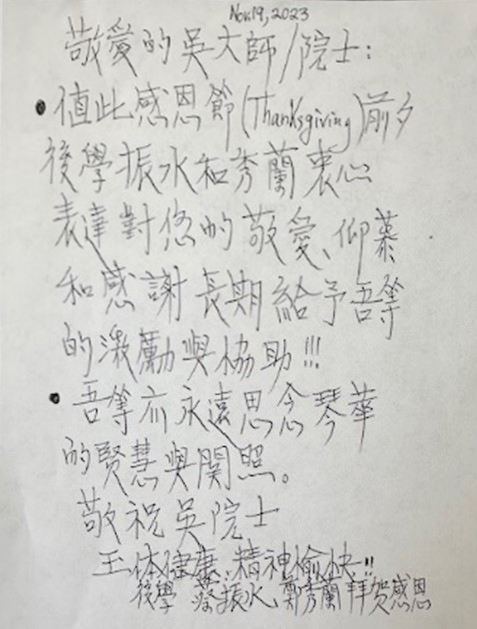 Nov.19, 2023
敬愛的吳大師/院士:
•值此感恩節(Thanksgiving)前夕
後學振水和秀蘭衷心
表達對您的敬愛、仰慕
和感謝長期給予吾等
的激勵與協助!!!
•吾等亦永遠思念琴華
的賢慧與関照。
敬祝吳院士
玉体健康、精神愉快!!
後學 蔡振水、鄭秀蘭 拜贺感恩